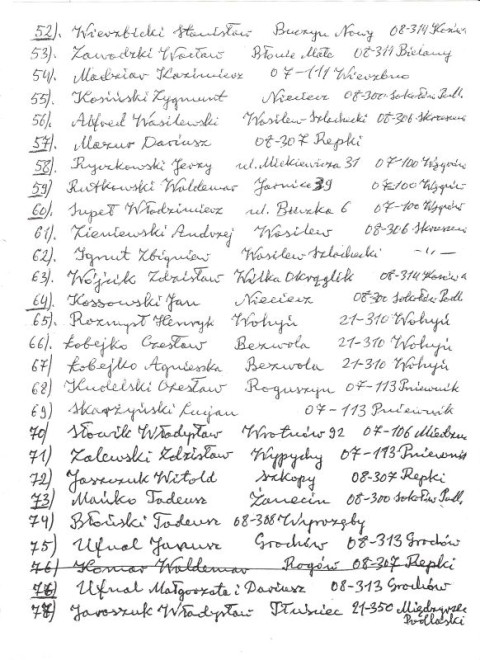 52). Wierzbicki Stanisław Buczyn Nowy 08-314
53). Zawadzki Wacław Błonie Małe 08-311 Bielany
54). Madziar Kazimierz 07-111 Wierzbno
55). Kosiński Zygmunt Nieciecz 08-300 Sokołów Podl.
56). Alfred Wasilewski Wasilew Szlachecki 08-306
57). Mazur Dariusz 08-307 Repki
58). Ryczkowski Jerzy ul. Mickiewicza 31 07-100 Węgrów
59) Rutkowski Waldemar Jarnice 39 07-100 Węgrów
60). Supeł Włodzimierz ul. 6 07-100 Węgrów
61). Zieniewski Andrzej Wasilew 08-306
62). Zbigniew Wasilew Szlachecki -"-
63). Wójcik Zdzisław Wólka Okrąglik 08-314
64). Kossowski Jan Nieciecz 08-300 Sokołów Podl
65). Rozmysł Henryk Wohyń 21-310 Wohyń
66). Łobejko Czesław Bezwola 21-310 Wohyń
67) Łobejko Agnieszka Bezwola 21-310 Wohyń
68) Czesław Roguszyn 07-113 Pniewnik
69) Skarżyński Lucjan 07-113 Pniewnik
70) Słowik Władysław Wrotnów 92 07-106
71) Zalewski Zdzisław Wypychy 07-113
72) Jaszczuk Witold Szkopy 08-307 Repki
73) Mańko Tadeusz Żanecin 08-300 Sokołów Podl.
74) Błoński Tadeusz 08-308 Wyrozęby
75) Ufnal Janusz Grochów 08-313 Grochów
76) Komar Waldemar Rogów 08-307 Repki
76) Ufnal Małgorzata i Dariusz 08-313 Grochów
77) Jaroszuk Władysław Tłuściec 21-350
Podlaski